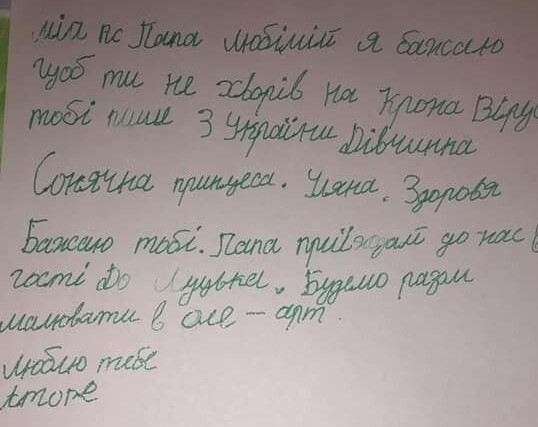 мій пс Папа любімій я бажаю
щоб ти не хворів на Крона Віру
тобі пише З України Дівчинна
Сонячна принцеса. Уляна. Здоровя
Бажаю тобі. Папа приїжджай до нас в
гості До Луцька. Будемо разом
малювати в оле - арт.
Люблю тебе
Amore